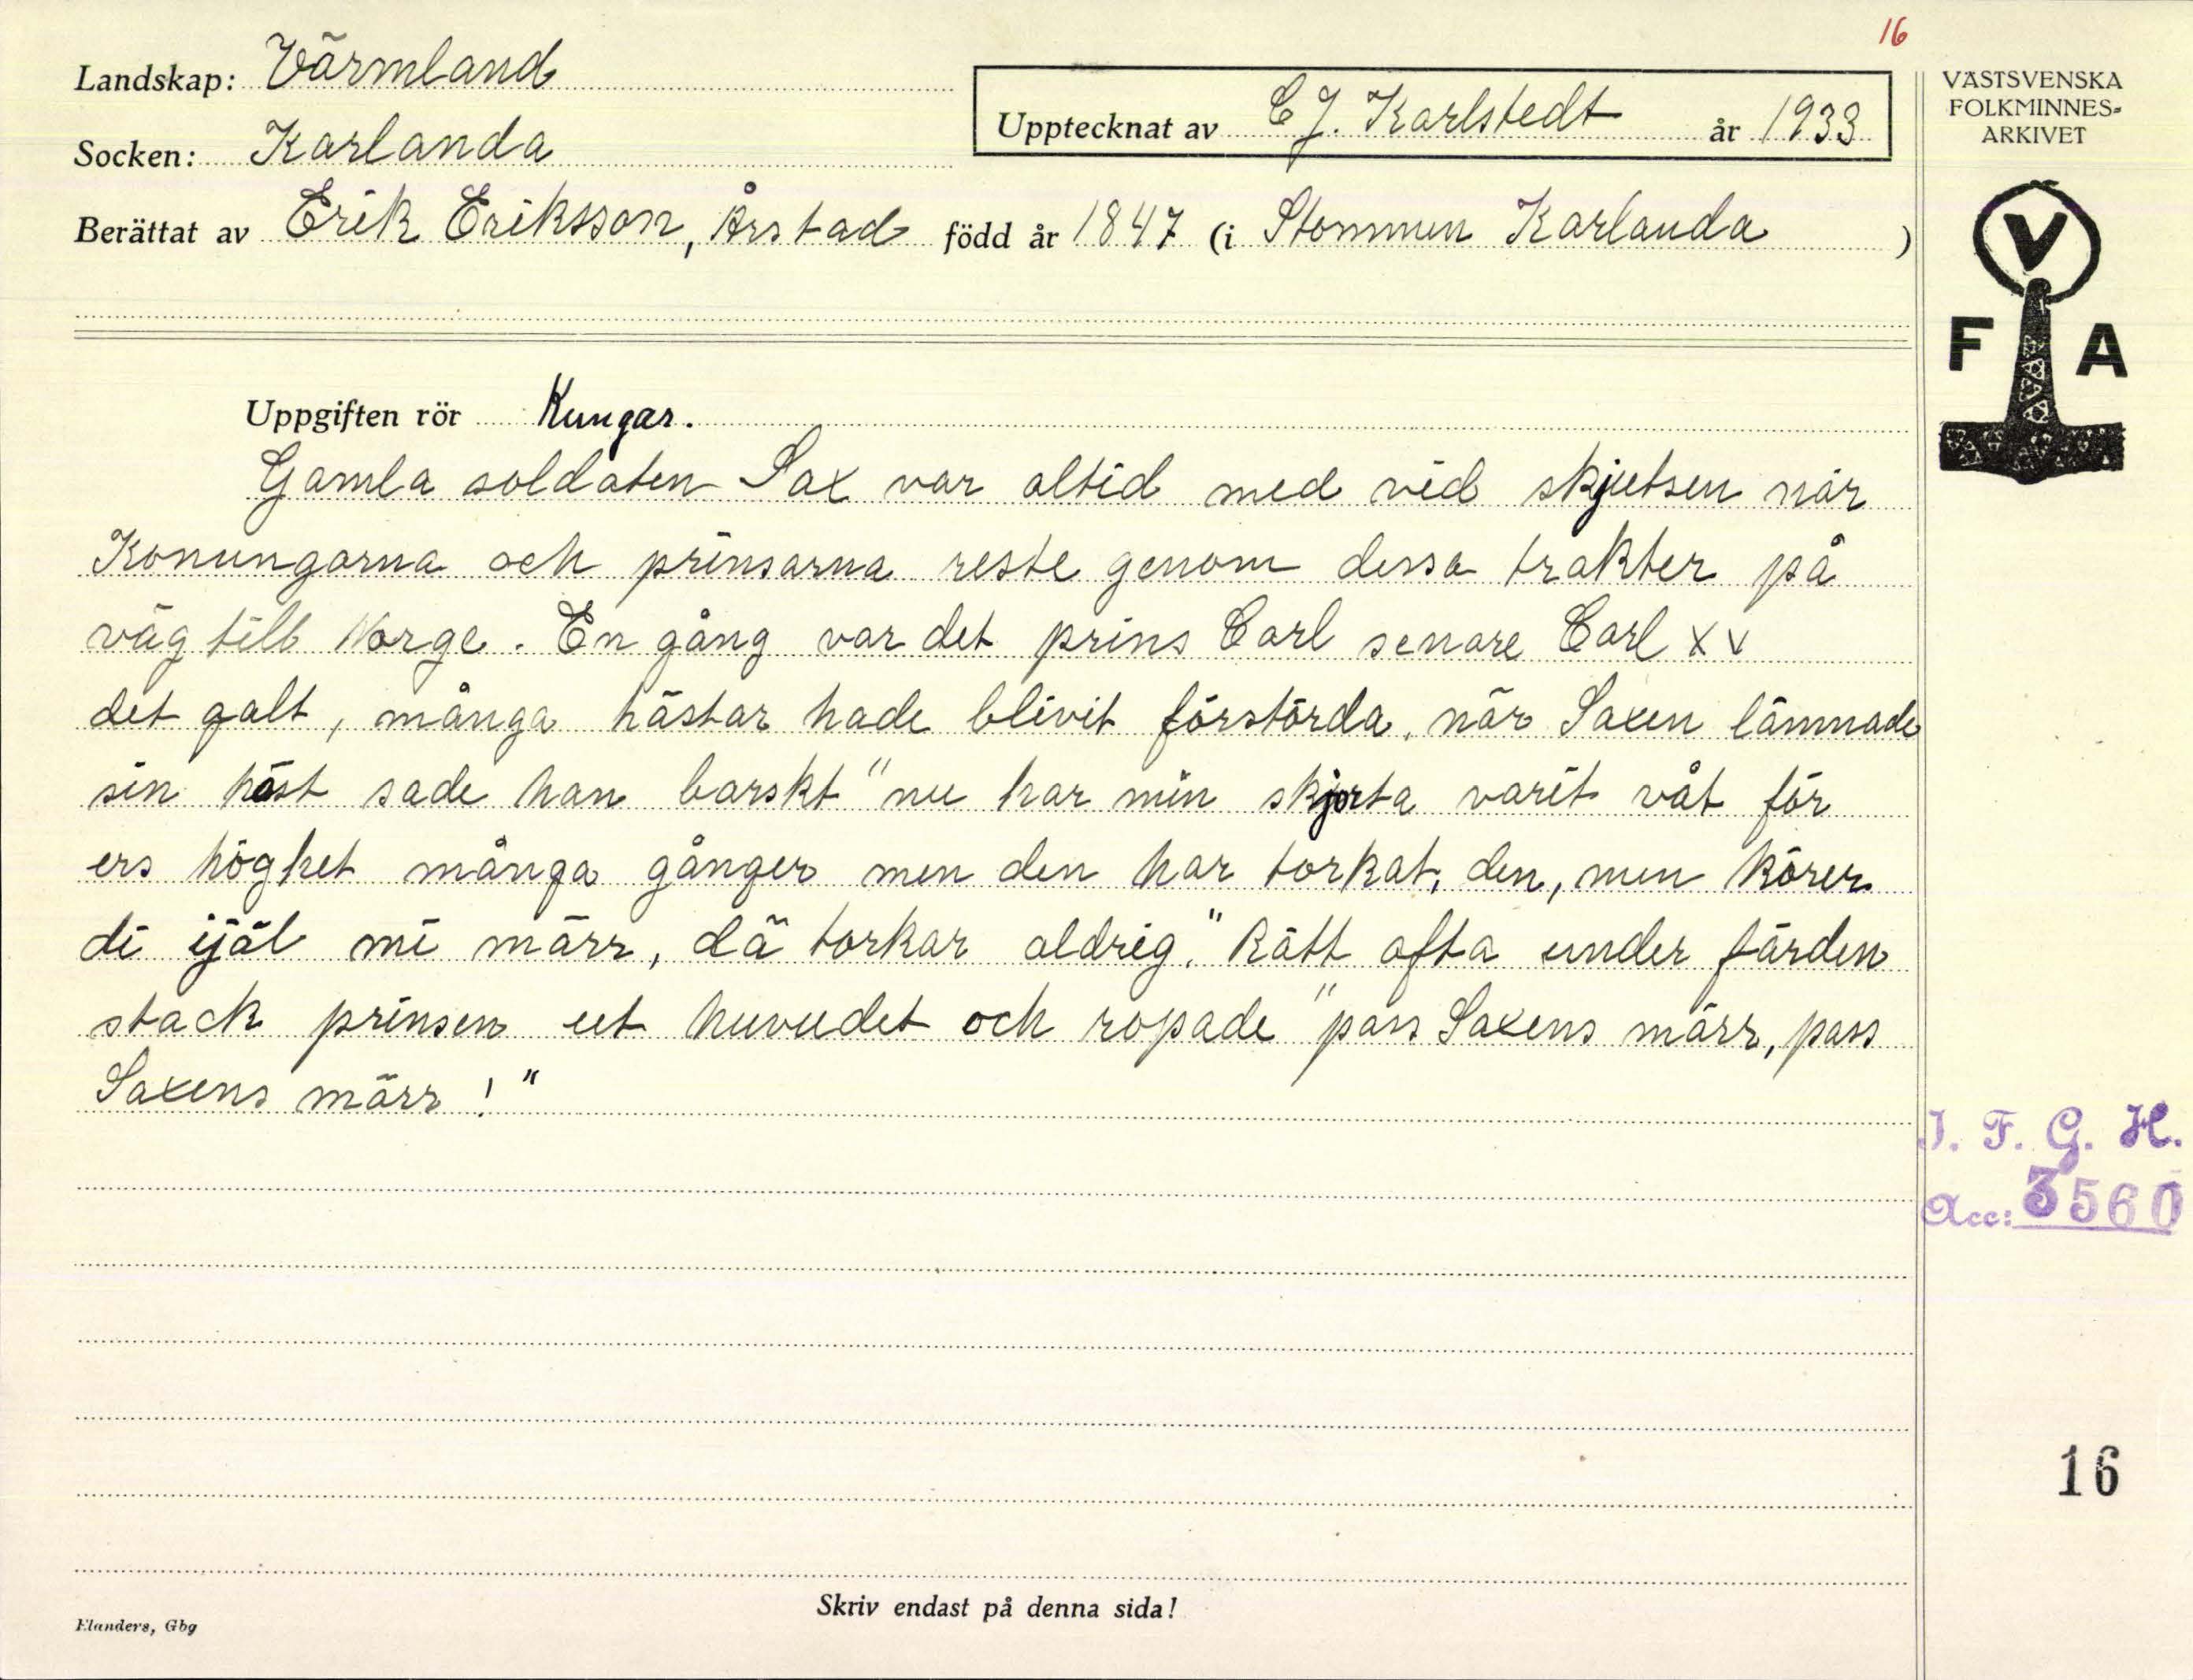 16
Landskap: Värmland
Upptecknat av C J. Karlstedt år 1933
VÄSTSVENSKA
FOLKMINNES-
ARKIVET
Socken: Karlanda
Berättat av Erik Eriksson, Årstad född år 1847 (i Stommen Karlanda )
V
F A
Uppgiften rör Kungar.
Gamla soldaten Sax var altid med vid skjutsen när
Konungarna och prinsarna reste genom dessa trakter på
väg till Norge. En gång var det prins Carl senare Carl XV
det galt, många hästar hade blivit förstörda, när Saxen lämnade
sin häst sade han barskt "nu har min skjorta varit våt för
ers höghet många gånger men den har torkat, den, men körer
di ijäl mi märr, dä torkar aldrig." Rätt ofta under färden
stack prinsen ut huvudet och ropade "pass Saxens märr, pass
Saxens märr!"
I. F. G. H.
Acc: 3560
16
Skriv endast på denna sida!
Elanders, Gbg